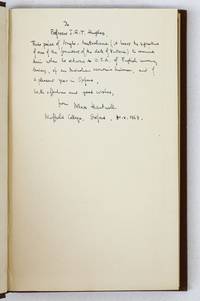 To
Professor J.R.T. Hughes
This piece of Anglo-Australiana (it bears the signature
of one of the founders of the state of Victoria) to remind
him when he returns to U.S.A. of English economic
history, of an Australian economic historian, and of
a pleasant year in Oxford.
With affection and good wishes,
from
Max Hartwell
Nuffield College, Oxford,